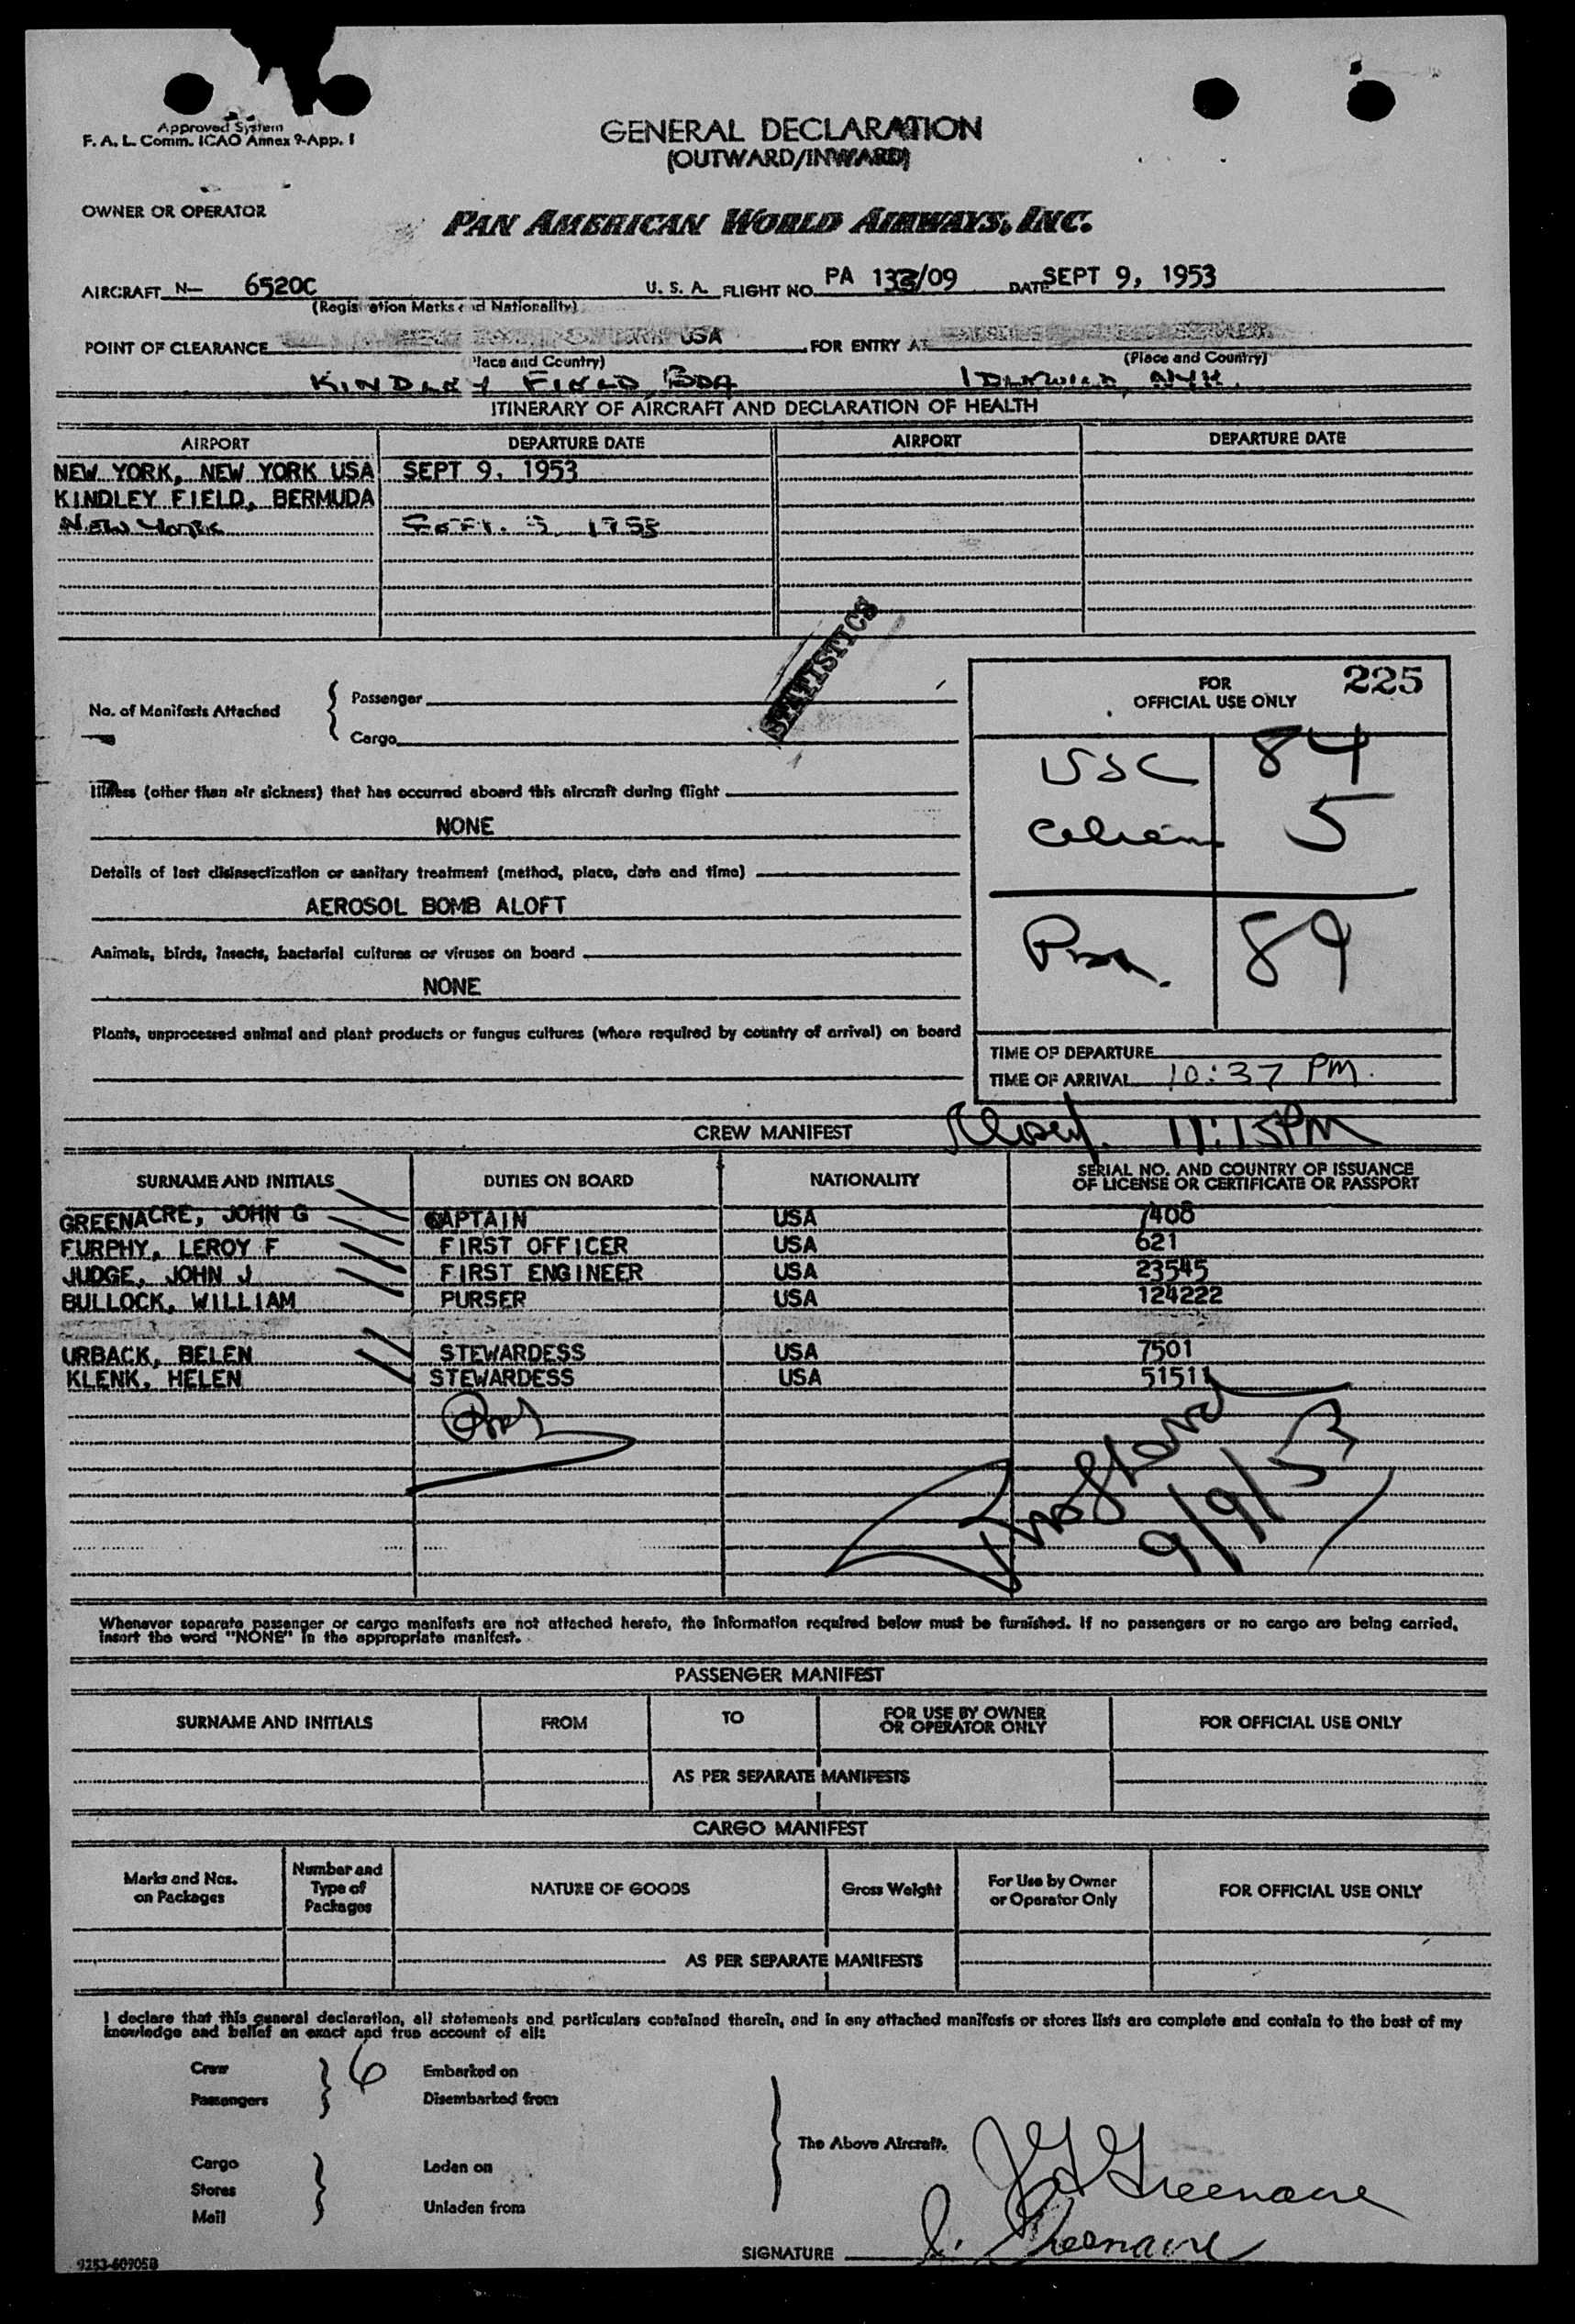 Approved System
F. A. L. Comm. ICAO Annex 9-App. I
GENERAL DECLARATION
(OUTWARD/INWARD)
OWNER OR OPERATOR
PAN AMERICAN WORLD AIRWAYS, INC.
AIRCRAFT N— 6520C U. S. A. FLIGHT NO. PA 133/09 DATE SEPT 9, 1953
(Registration Marks and Nationality)
POINT OF CLEARANCE USA FOR ENTRY AT
(Place and Country) (Place and Country)
KINDLEY FIELD, BDA IDLEWILD, NYK.
ITINERARY OF AIRCRAFT AND DECLARATION OF HEALTH
AIRPORT DEPARTURE DATE AIRPORT DEPARTURE DATE
NEW YORK, NEW YORK USA SEPT 9, 1953
KINDLEY FIELD, BERMUDA
NEW YORK SEPT. 9, 1953
STATISTICS
No. of Manifests Attached { Passenger
Cargo
FOR OFFICIAL USE ONLY 225
USC 84
Aliens 5
89
Illness (other than air sickness) that has occurred aboard this aircraft during flight
NONE
Details of last disinsectization or sanitary treatment (method, place, date and time)
AEROSOL BOMB ALOFT
Animals, birds, insects, bacterial cultures or viruses on board
NONE
Plants, unprocessed animal and plant products or fungus cultures (where required by country of arrival) on board
TIME OF DEPARTURE
TIME OF ARRIVAL 10:37 PM.
CREW MANIFEST
11:15PM
SURNAME AND INITIALS DUTIES ON BOARD NATIONALITY SERIAL NO. AND COUNTRY OF ISSUANCE OF LICENSE OR CERTIFICATE OR PASSPORT
GREENACRE, JOHN G CAPTAIN USA 7408
FURPHY, LEROY F FIRST OFFICER USA 621
JUDGE, JOHN J FIRST ENGINEER USA 23545
BULLOCK, WILLIAM PURSER USA 124222
URBACK, BELEN STEWARDESS USA 7501
KLENK, HELEN STEWARDESS USA 51511
9/9/53
Whenever separate passenger or cargo manifests are not attached hereto, the information required below must be furnished. If no passengers or no cargo are being carried,
insert the word "NONE" in the appropriate manifest.
PASSENGER MANIFEST
SURNAME AND INITIALS FROM TO FOR USE BY OWNER OR OPERATOR ONLY FOR OFFICIAL USE ONLY
AS PER SEPARATE MANIFESTS
CARGO MANIFEST
Marks and Nos. on Packages Number and Type of Packages NATURE OF GOODS Gross Weight For Use by Owner or Operator Only FOR OFFICIAL USE ONLY
AS PER SEPARATE MANIFESTS
I declare that this general declaration, all statements and particulars contained therein, and in any attached manifests or stores lists are complete and contain to the best of my
knowledge and belief an exact and true account of all:
Crew 6 Embarked on
Passengers Disembarked from
The Above Aircraft.
Cargo Laden on
Stores
Mail Unladen from
JG Greenacre
SIGNATURE J. Greenacre
9283-60905B